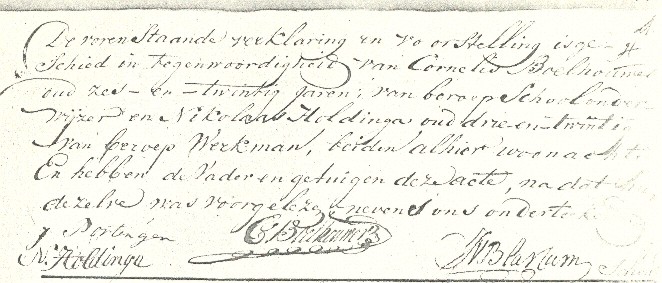 De voren Staande verklaring en voorstelling is ge-
schied in tegenwoordigheid van Cornelis Boelhouwer
oud zes-en-twintig jaren; van beroep Schoolonder-
wijzer en Nikolaas Holdinga oud drie-en-twintig
van beroep Werkman, beiden alhier woonacht:
En hebben de Vader en getuigen deze acte, na dat
dezelve was voorgelezen nevens ons onderteek
C Boelhouwer
N: Holdinga